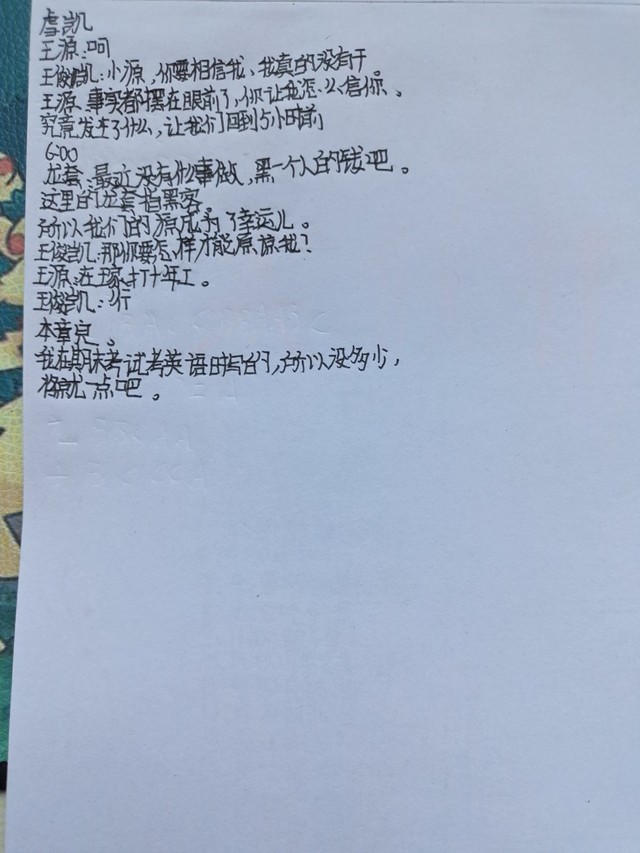 虐凯
王源:呵
王俊凯:小源,你要相信我、我真的没有干。
王源、事实都摆在眼前了,你让我怎么信你、
究竟发生了什么,让我们回到5小时前
6:00
龙套:最近没有什么事做,黑一个人的钱吧。
这里的龙套指黑客。
所以我们的源成为了幸运儿。
王俊凯:那你要怎样才能原谅我?
王源:在王家打十年工。
王俊凯:行
本章完。
我在期末考试考英语时写的,所以没多少,
将就一点吧。